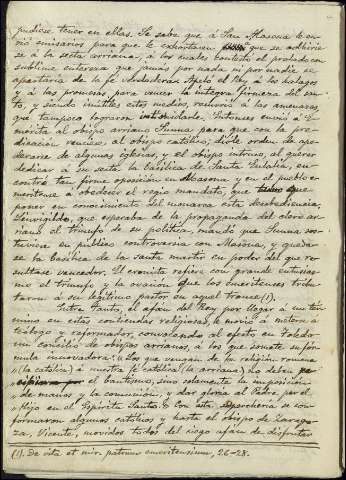 pudiese tener en ellas. Se sabe que á San Masona le en-
vió emisarios para que le exhortaran á que se adhirie-
se á la secta arriana, á los cuales contestó el prelado con
sublime entereza que jamás por nada ni por nadie se
apartaría de la fe verdadera. Apeló el Rey á los halagos
y á las promesas para vencer la íntegra firmeza del san-
to, y siendo inútiles estos medios, recurrió á las amenazas,
que tampoco lograron intimidarle. Entonces envió á E-
mérita al obispo arriano Sunna para que con la pre-
dicación venciese al obispo católico; dióle orden de apo-
derarse de algunas iglesias, y el obispo intruso, al querer
dedicar á su secta la Basílica de Santa Eulalia, en-
contró tan firme oposición en Masona y en el pueblo e-
meritense á obedecer el regio mandato, que tuvo que
poner en conocimiento del monarca esta desobediencia.
Leovigildo, que esperaba de la propaganda del clero ar-
riano el triunfo de su política, mandó que Sunna sos-
tuviese en público controversia con Masona, y queda-
se la basílica de la santa mártir en poder del que re-
sultase vencedor. El cronista refiere con grande entusias-
mo el triunfo y la ovación que los emeritenses tribu-
taron á su legítimo pastor en aquel trance (1).
Entre tanto, el afán del Rey por llegar á un tér-
mino en estas contiendas religiosas, le movió á meterse á
teólogo y reformador, convocando al efecto en Toledo
un concilio de obispos arrianos, á los que somete su fór-
mula innovadora: «Los que vengan de la religión romana
»(la católica) á nuestra fe católica (la arriana) no deben
el bautismo, sino solamente la imposición
»de manos y la comunión, y dar gloria al Padre por el
»Hijo en el Espíritu Santo.» Con esta superchería se con-
formaron algunos católicos y hasta el obispo de Zarago-
za, Vicente, movidos todos del ciego afán de disfrutar
(1). De vita et mir. patrum emeritensium, 26-28.